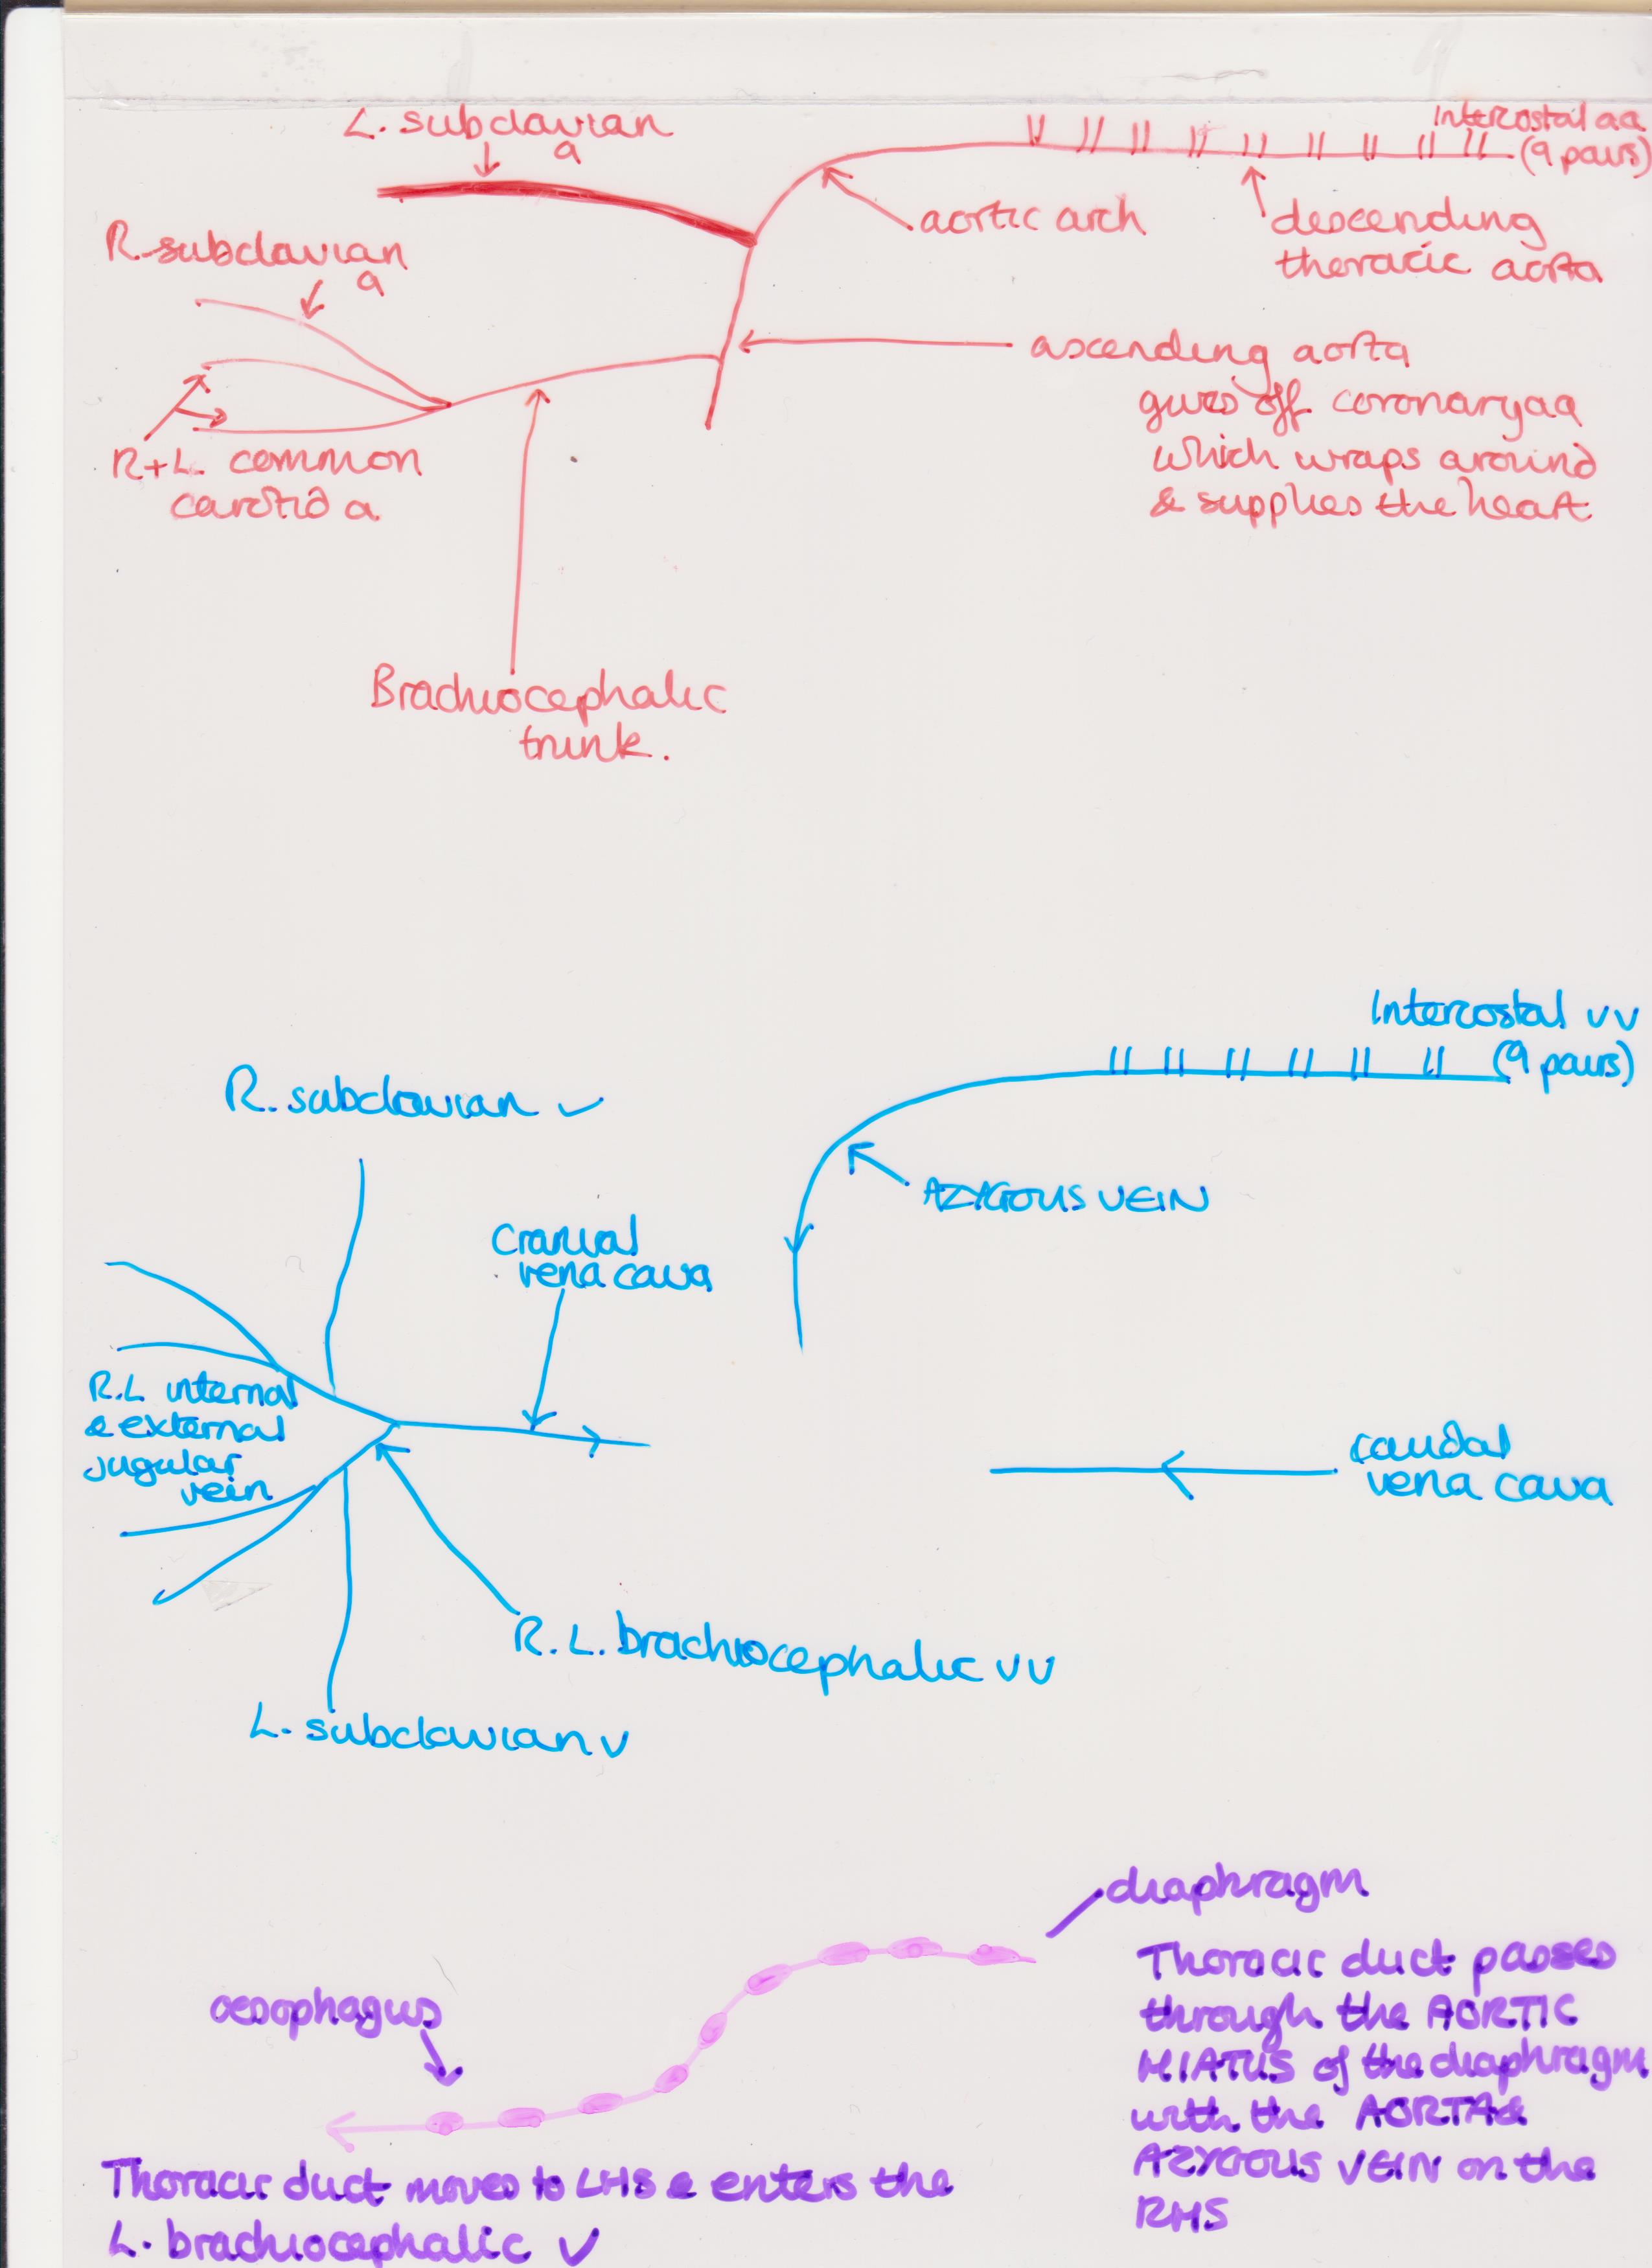 L. subclavian
a
Intercostal aa
(9 pairs)
R. subclavian
a
aortic arch
descending
thoracic aorta
ascending aorta
gives off coronary aa
which wraps around
& supplies the heart
R+L. common
carotid a
Brachiocephalic
trunk.
Intercostal vv
(9 pairs)
R. subclavian v
AZYGOUS VEIN
Cranial
vena cava
R.L internal
& external
jugular
vein
caudal
vena cava
R.L. brachiocephalic vv
L. subclavian v
diaphragm
oesophagus
Thoracic duct passes
through the AORTIC
HIATUS of the diaphragm
with the AORTA &
AZYGOUS VEIN on the
RHS
Thoracic duct moves to LHS & enters the
L. brachiocephalic v